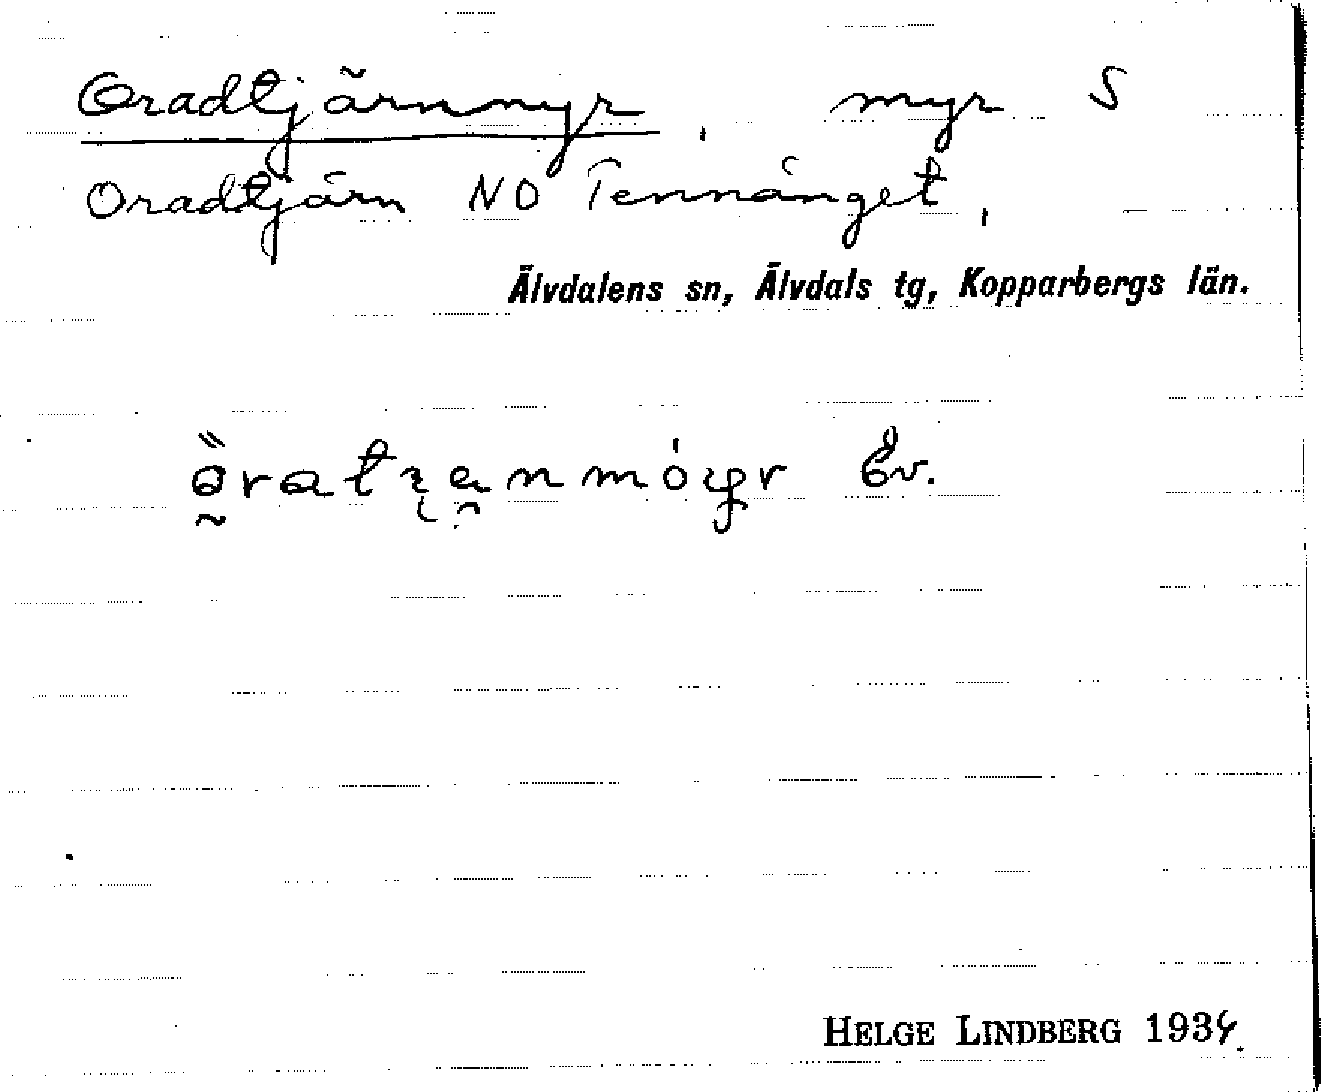 Oradtjärnmyr, myr S
Oradtjärn NO Tennänget,
Älvdalens sn, Älvdals tg, Kopparbergs län.
HELGE LINDBERG 1934.